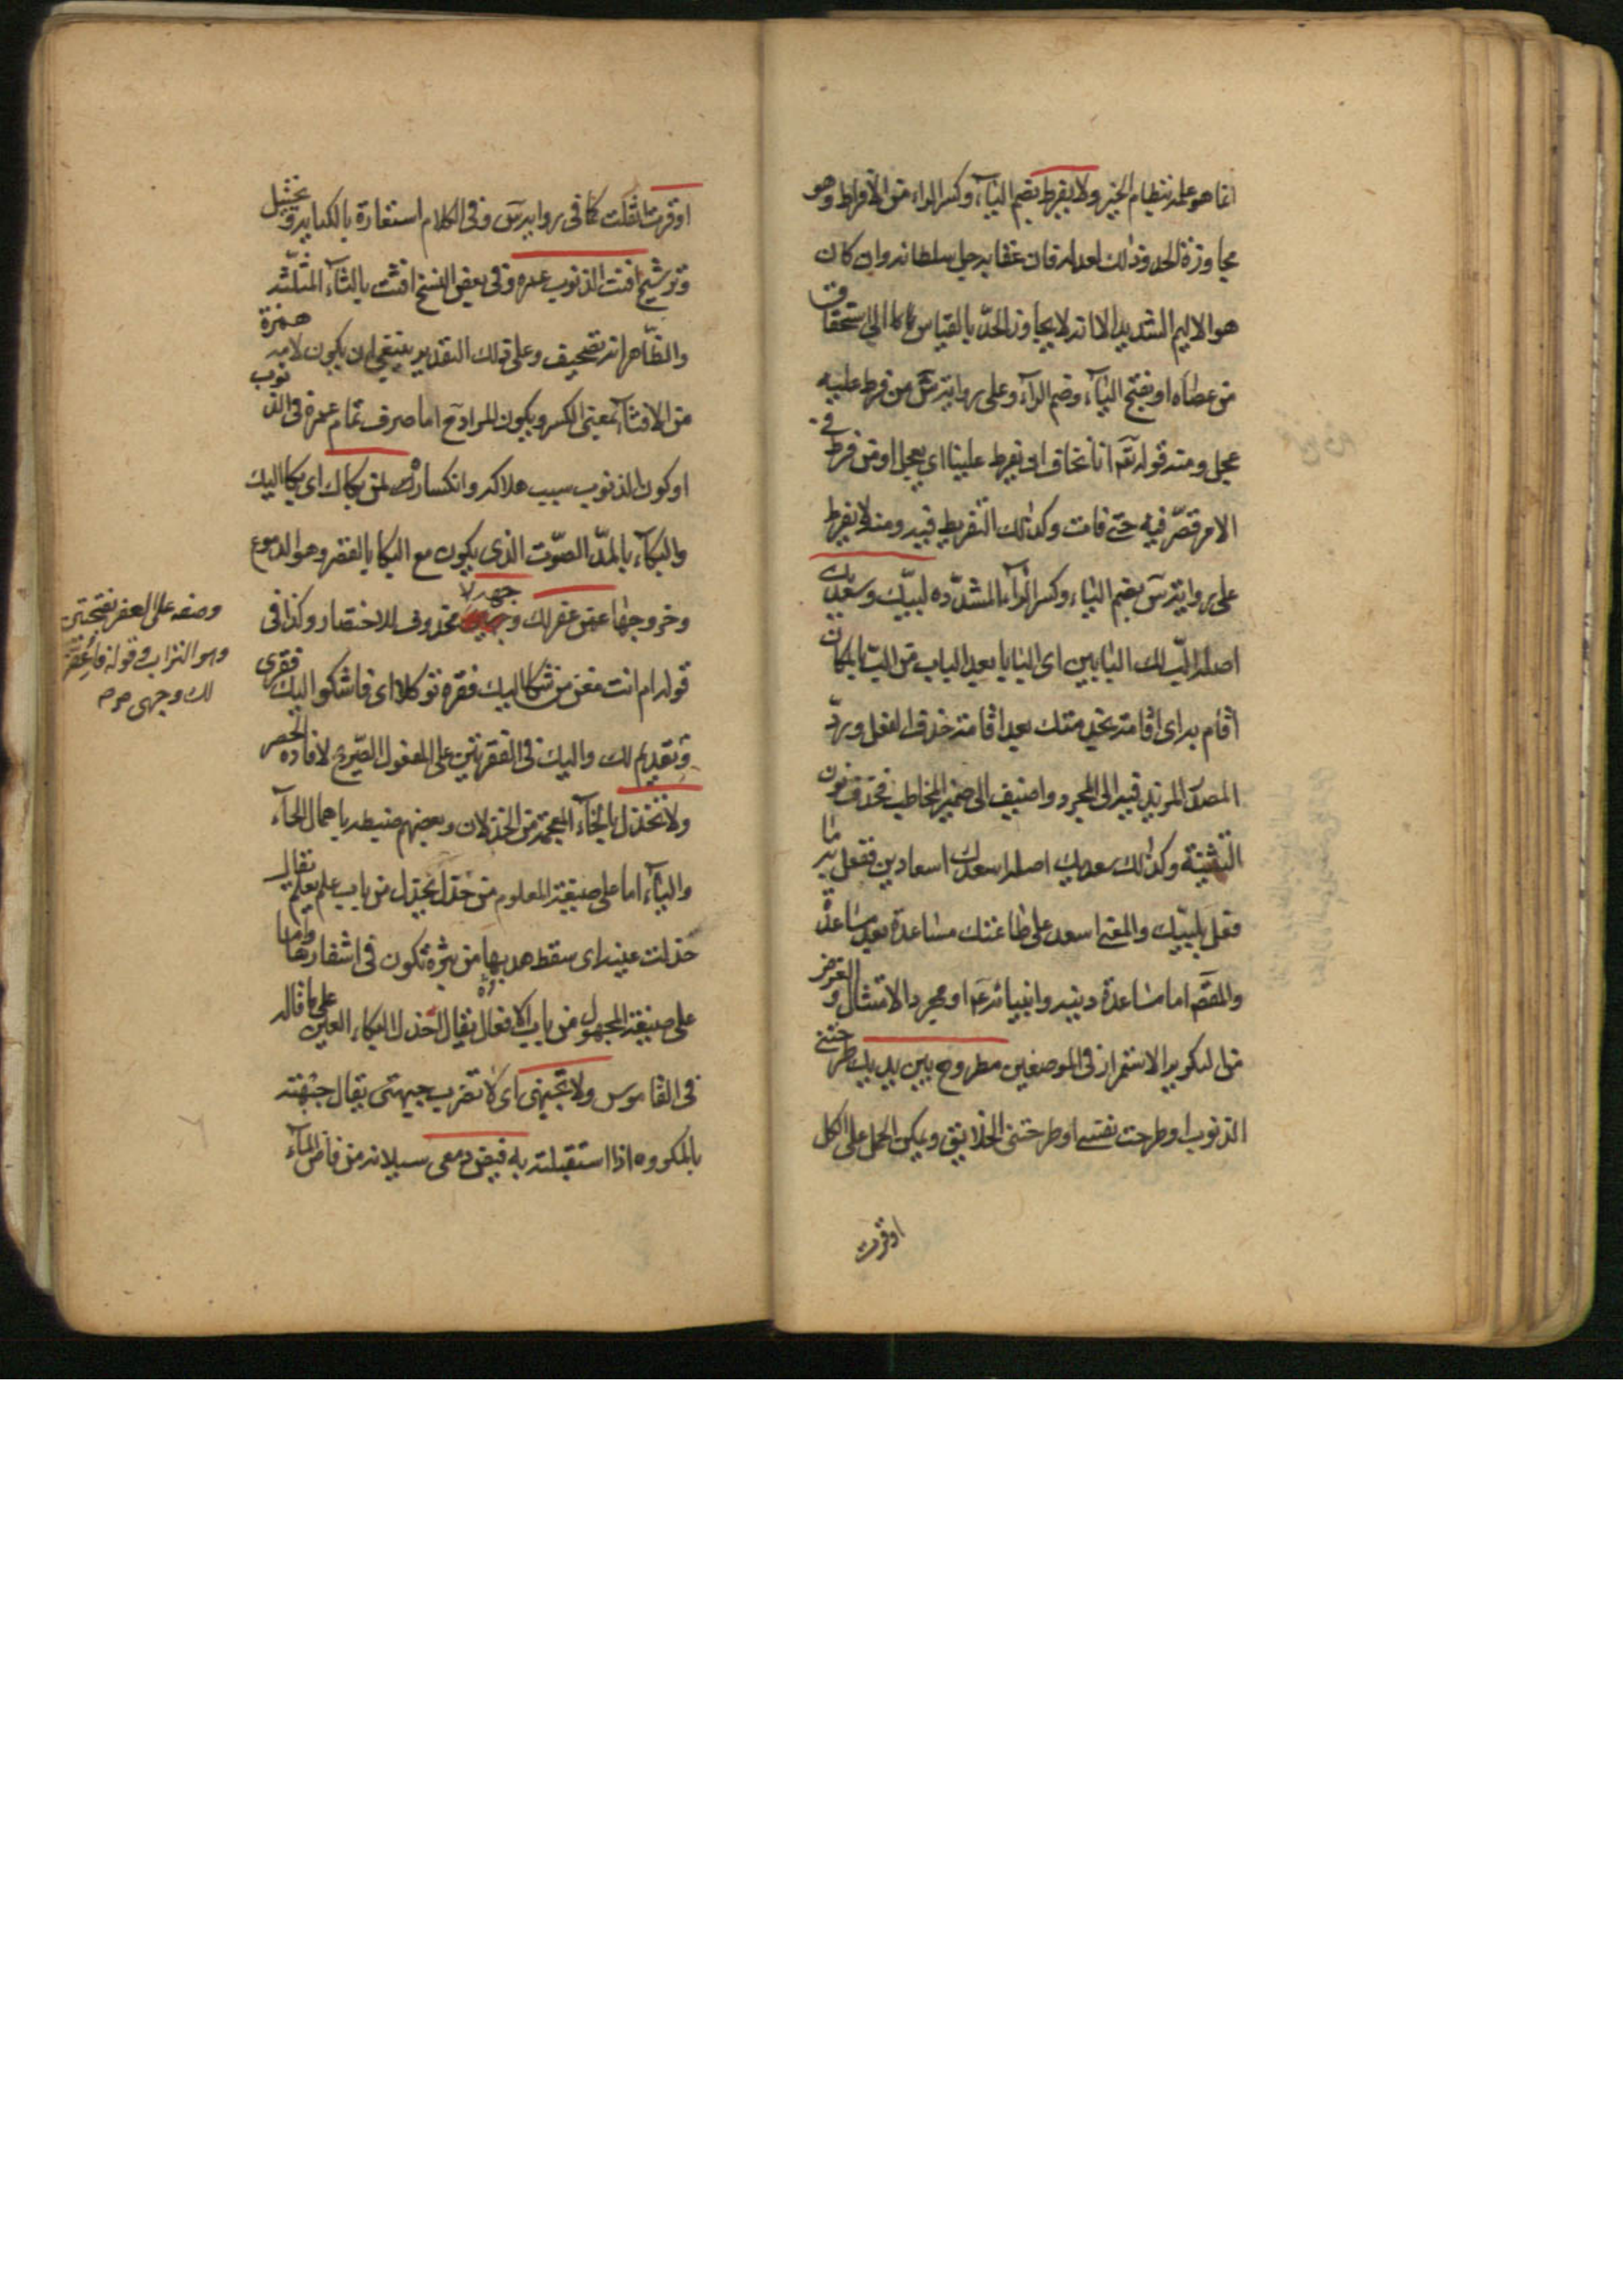 انما هو علمه بنظام الخير ولا يفرط بضم الياء وكسر الراء من الافراط وهو
مجاوزة الحد وذلك لعدله فان عقابه جل سلطانه وان كان
هو الاليم الشديد الا انه لا يجاوز الحد بالقياس الى استحقاق
من عصاه او بفتح الياء وضم الراء وعلى رواية من فرط عليه
عجل ومنه قوله تع اننا نخاف ان يفرط علينا اى يعجل او من فرط في
الامر قصّر فيه حتى فات وكذلك التفريط فيه ومنه لا يفرط
على رواية س بضم الياء وكسر الراء المشدّده لبيّك وسعديك
اصله البّ لك البابين اى البابا بعد الباب من البّ بالمكان
اقام به اى اقامة بخدمتك بعد اقامة فحذف الفعل وردّ
المصدر المزيد فيه الى المجرد واضيف الى ضمير المخاطب فحذف نون
التثنية وكذلك سعديك اصله اسعدك اسعادين ففعل به ما
فعل بلبيّك والمعنى اسعد على طاعتك مساعدة بعد مساعدة
والمقص اما مساعدة دينه وانبيائه ع او مجرد الامتثال والغرض
من التكرير الاستمرار فى الموضعين مطروح بين يديك طرحتنى
الذنوب او طرحت نفسى او طرحتنى الخلايق ويمكن الحمل على الكل
اوقرت
اوقرت اثقلت كما فى رواية س وفى الكلام استعارة بالكناية وتخييل
وترشيح افنت الذنوب عمره وفى بعض النسخ افثت بالثاء المثلّثة
والظاهر انه تصحيف وعلى ذلك التقدير ينبغى ان يكون لامه همزة
من الافثاء بمعنى الكسر ويكون المراد ح اما صرف تمام عمره فى الذنوب
او كون الذنوب سبب هلاكه وانكساره لمن بكاك اى بكا اليك
والبكاء بالمدّ الصّوت الذى يكون مع البكا بالقصر وهو الدموع
وخروجها عمن عفر لك وجهه لا محذوف للاختصار وكذا فى
قوله ام انت مغن من شكا اليك فقره توكلا اى فاشكو اليك فقرى
وتقديم لك واليك فى الفقرتين على المفعول الصّريح لافاده الحصر
ولا تخذل بالخاء المعجمة من الخذلان وبعضهم ضبطه باهمال الحاء
والياء اما على صيغة المعلوم من حذل يحذل من باب علم يعلم يقال
حذلت عينه اى سقط هدبها من بثرة تكون فى اشفارها واما
على صيغة المجهول من باب الافعال يقال احذل البكاء العين على ما قاله
فى القاموس ولا تجبهنى اى لا تضرب جبهتى يقال جبهته
بالمكروه اذا استقبلته به فيض دمعى سيلانه من فاض الماء
وضعه على العفر بفتحتين
وهو التراب و قوله فاعفر
لك وجهى